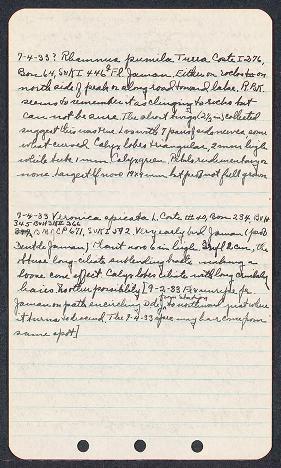 7-4-33? Rhamnus pumila Turra Coste I 276,
Bon 64, S&K I 446 Fl. Jaman. Either on rocks on
north side of peak or along road toward lake. R.B.K.
seems to remember it as clinging to rocks but
can not be sure. The short twigs (2½ in) collected
suggest this was true. Los with 7 pairs of nerves some
what curved. Calyx lobes triangular, 2 mm high
while tube 1 mm. Calyx green. Petals rudimentary or
none. Largest lf now 19x9 mm but prob not full grown
7-4-33 Veronica spicata L. Coste III 40, Bon 234, B&H
345 B&H Ill 366
671, S&K I 592. Very early bud Jaman (path
Dent de Jaman) Plant now 6 in high. Infl 2 cm, the
obtuse long ciliate subtending bracts making a
loose cone effect. Calyx lobes ciliate with long crinkly
hairs. No other possibility [9-2-33 Fr unripe fr
Jaman on path encircling from station to northward just where
it turns to descend. The 7-4-33 spec may have come from
same spot]